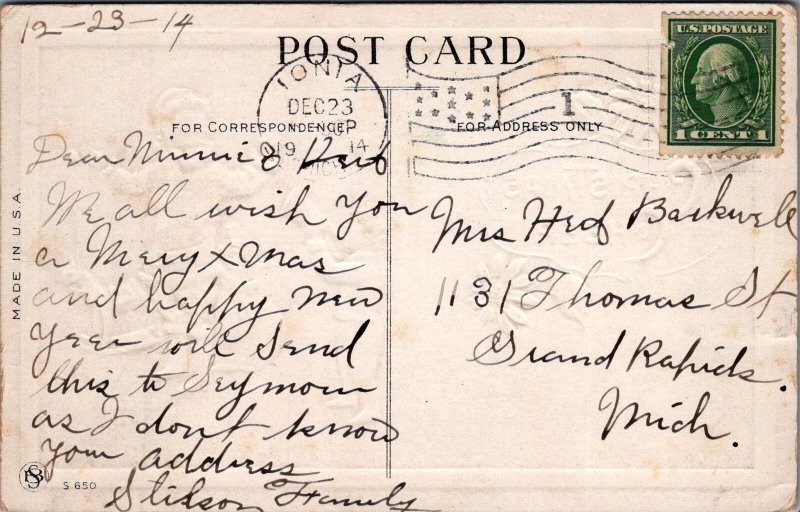 12-23-14
POST CARD
U.S. POSTAGE
1 CENT 1
IONIA
DEC 23
P
19 14
MICH.
1
FOR CORRESPONDENCE
FOR ADDRESS ONLY
Dear Minnie &
We all wish you
a Mery Xmas
and happy New
Year will send
this to Seymour
as I dont know
your address
Stilson Family
Mrs Barkwell
1131 Thomas St
Grand Rapids.
Mich.
MADE IN U.S.A.
S 650